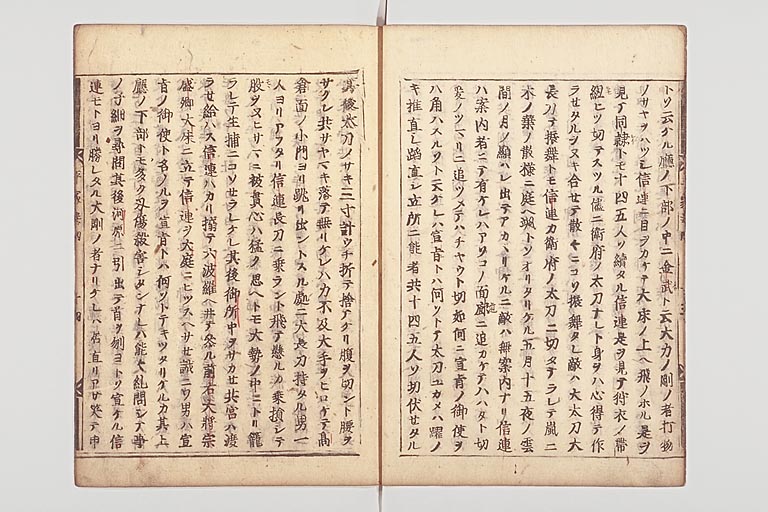 トソ云ケル廳ノ下部ノ中ニ金武ト云大力ノ剛ノ者打物
ノサヤヲハツシ信連ニ目ヲカケテ大床ノ上ヘ飛ノホル是ヲ
見テ同隷トモ十四五人ソ續タル信連是ヲ見テ狩衣ノ帯
紐ヒツ切テスツル儘ニ衛府ノ太刀ナレト身ヲハ心得テ作
ラセタルヲヌキ合セテ散々ニコソ振舞タレ敵ハ大太刀大
長刀テ振舞トモ信連カ衛府ノ太刀ニ切タテラレテ嵐ニ
木ノ葉ノ散様ニ庭ヘ颯トソオリタリケル五月十五夜ノ雲
間ノ月ノ顕ハレ出テアカヽリケルニ敵ハ無案内ナリ信連
ハ案内者ニテ有ケレハアソコノ面廊ニ追カケテハハタト切
爰ノツマリニ追ツメテハチヤウト切如何ニ宣旨ノ御使ヲ
ハ角ハスルソト云ケレハ宣旨トハ何ソトテ太刀ユカメハ躍ノ
キ推直シ蹈直シ立所ニ能者共十四五人ソ切伏セタル
其後太刀ノサキ三寸計ウチ折テ捨テケリ腹ヲ切ント腰ヲ
サクレ共サヤマキ落テ無リケレハ力不及大手ヲヒロケテ高
倉面ノ小門ヨリ跳リ出ントスル處ニ大長刀持タル男一
人ヨリアフタリ信連長刀ニ乗ラント飛テ懸ルカ乗損シテ
股ヲヌヒサマニ被貫心ハ猛ク思ヘトモ大勢ノ中ニトリ籠
ラレテ生捕ニコソセラレケレ其後御所中ヲサカセ共宮ハ渡
ラせ給ハス信連ハカリ搦テ六波羅ヘ井テ参ル前右大将宗
盛卿大床ニ立テ信連ヲ大庭ニヒツスヘサせ誠ニワ男ハ宣
旨ノ御使ト名ノルヲ宣旨トハ何ソトテキツタリケルカ其上
廳ノ下部トモ多ク刃傷殺害シタンナレハ能々糺問シテ事
ノ子細ヲ尋問其後河原ニ引出テ首ヲ刎ヨトソ宣ケル信
連モトヨリ勝レタル大剛ノ者ナリケレハ居直リアサ笑テ申